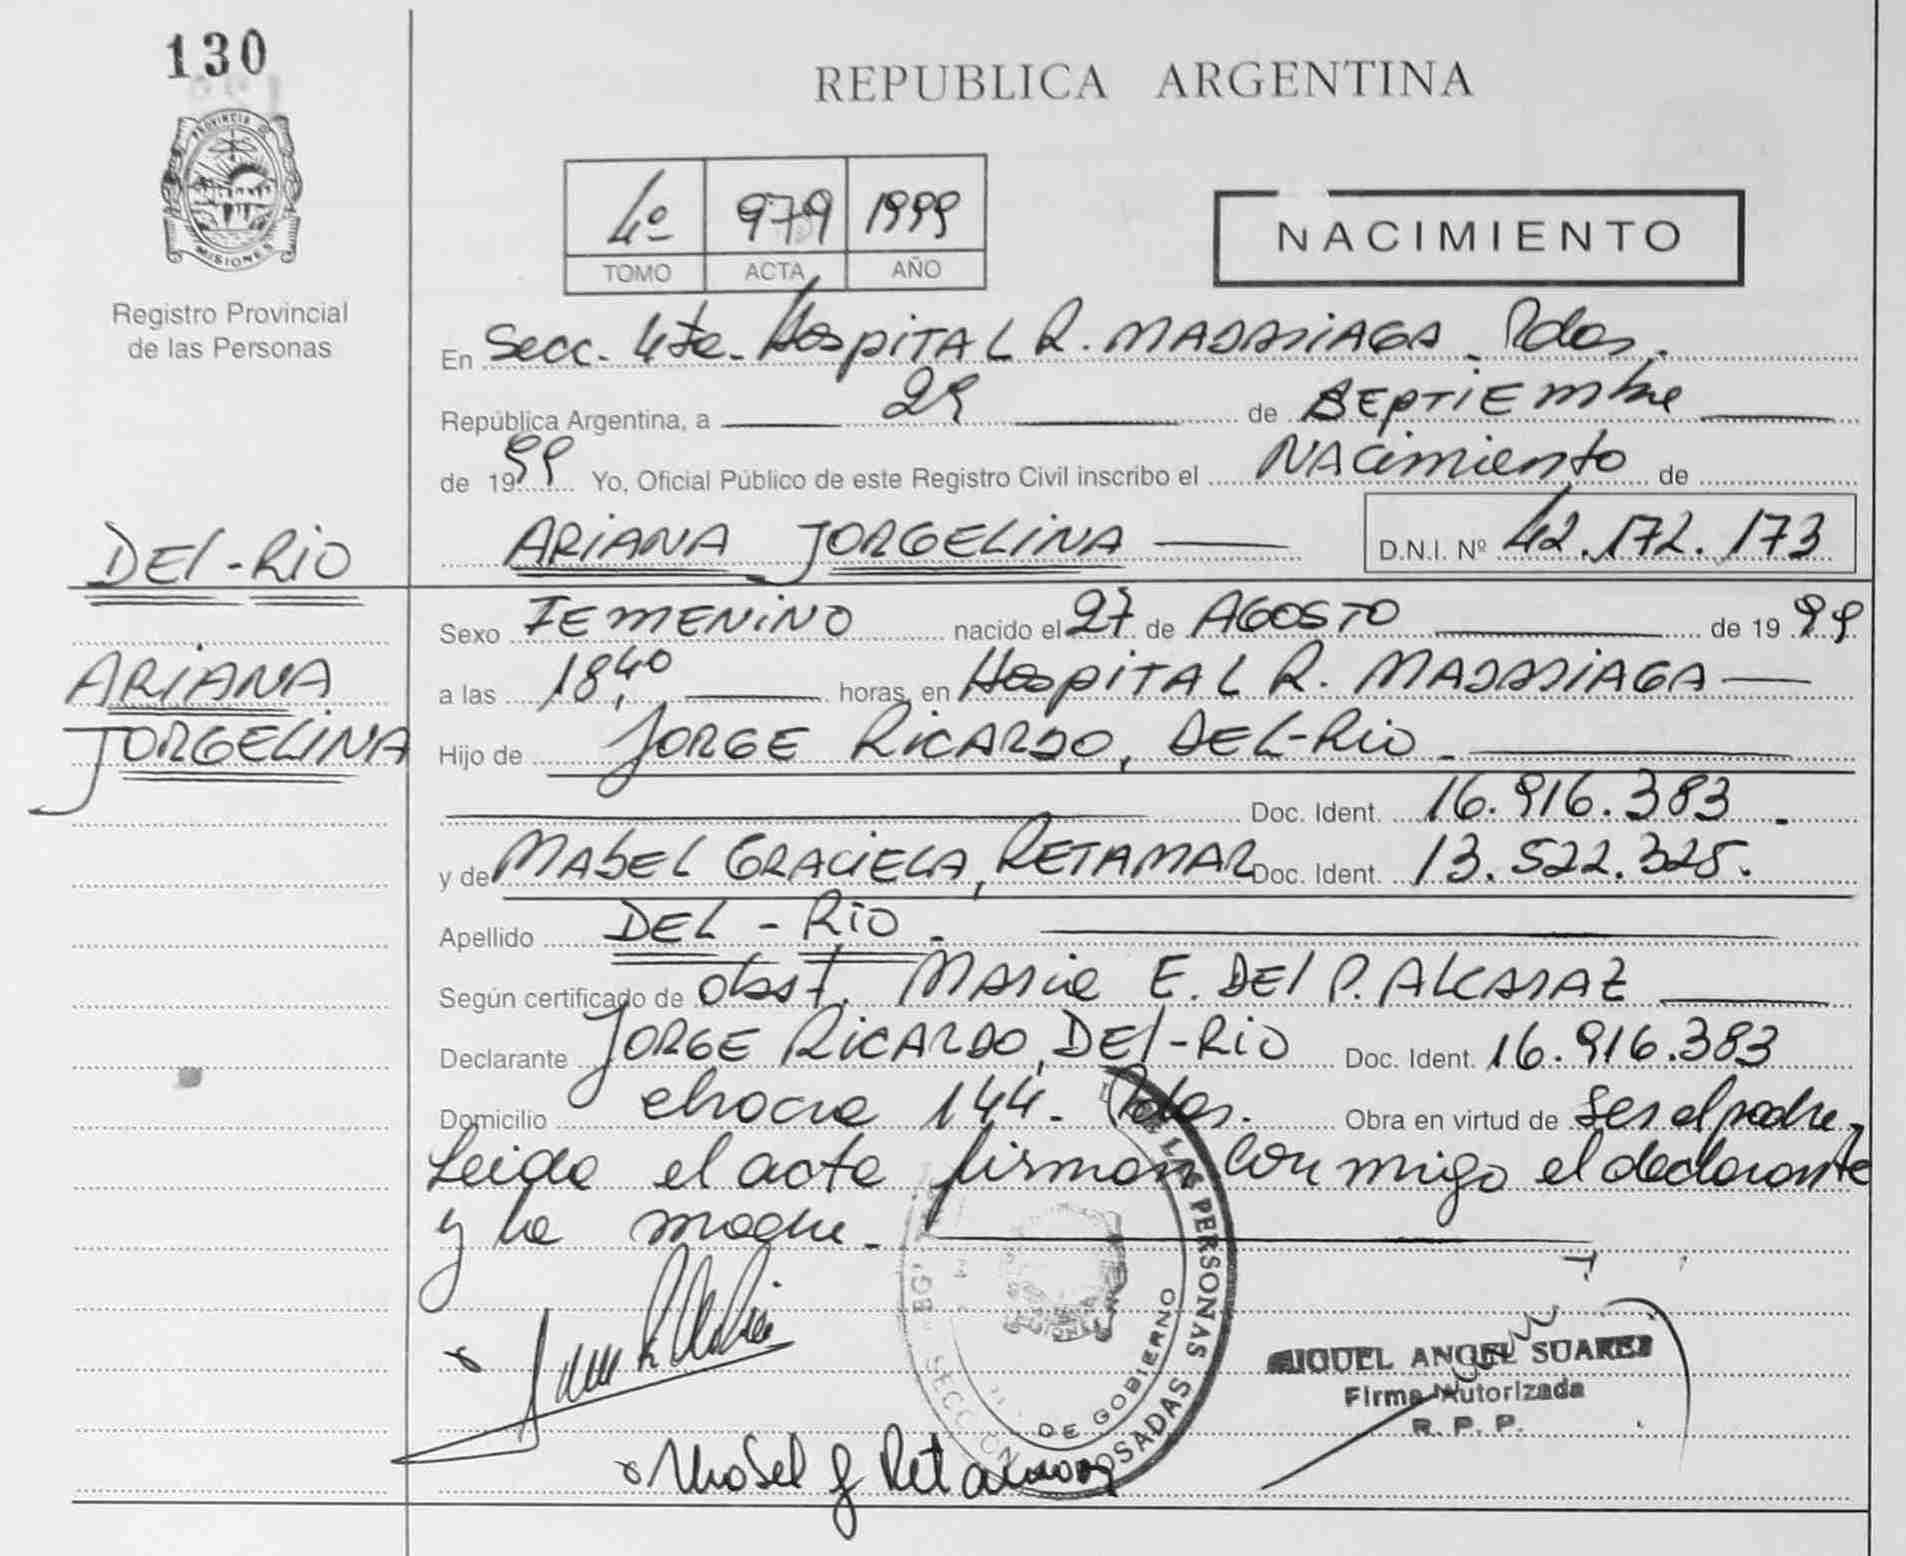 130
PROVINCIA DE
MISIONES
Registro Provincial
de las Personas
REPUBLICA ARGENTINA
4º 979 1999
TOMO ACTA AÑO
NACIMIENTO
En Secc. 4ta. Hospital R. MADARIAGA. Pdas.
República Argentina, a 29 de SEPTIEMbre
de 1999 Yo, Oficial Público de este Registro Civil inscribo el NAcimiento de
ARIANA JORGELINA D.N.I. Nº 42.172.173
DEl-RiO
ARIANA
JORGELINA
Sexo FEMENINO nacido el 27 de AGOSTO de 1999
a las 18,40 horas, en HospITAL R. MADARIAGA
Hijo de JORGE RICARDO, DEL-RiO
Doc. Ident. 16.916.383
y de MABEL GRACIELA, RETAMAR Doc. Ident. 13.522.325.
Apellido DEL-RIO.
Según certificado de obst. Maria E. DEl P. ALCARAZ
Declarante JORGE RICARDO, DEl-RiO Doc. Ident. 16.916.383
Domicilio chacra 144. Pdas. Obra en virtud de ser el padre.
Leida el acta firman conmigo el declarante
y la madre.
DE LAS PERSONAS
DE GOBIERNO
SECCIÓN POSADAS
MIGUEL ANGEL SUAREZ
Firma Autorizada
R. P. P.
Mabel G Retamar